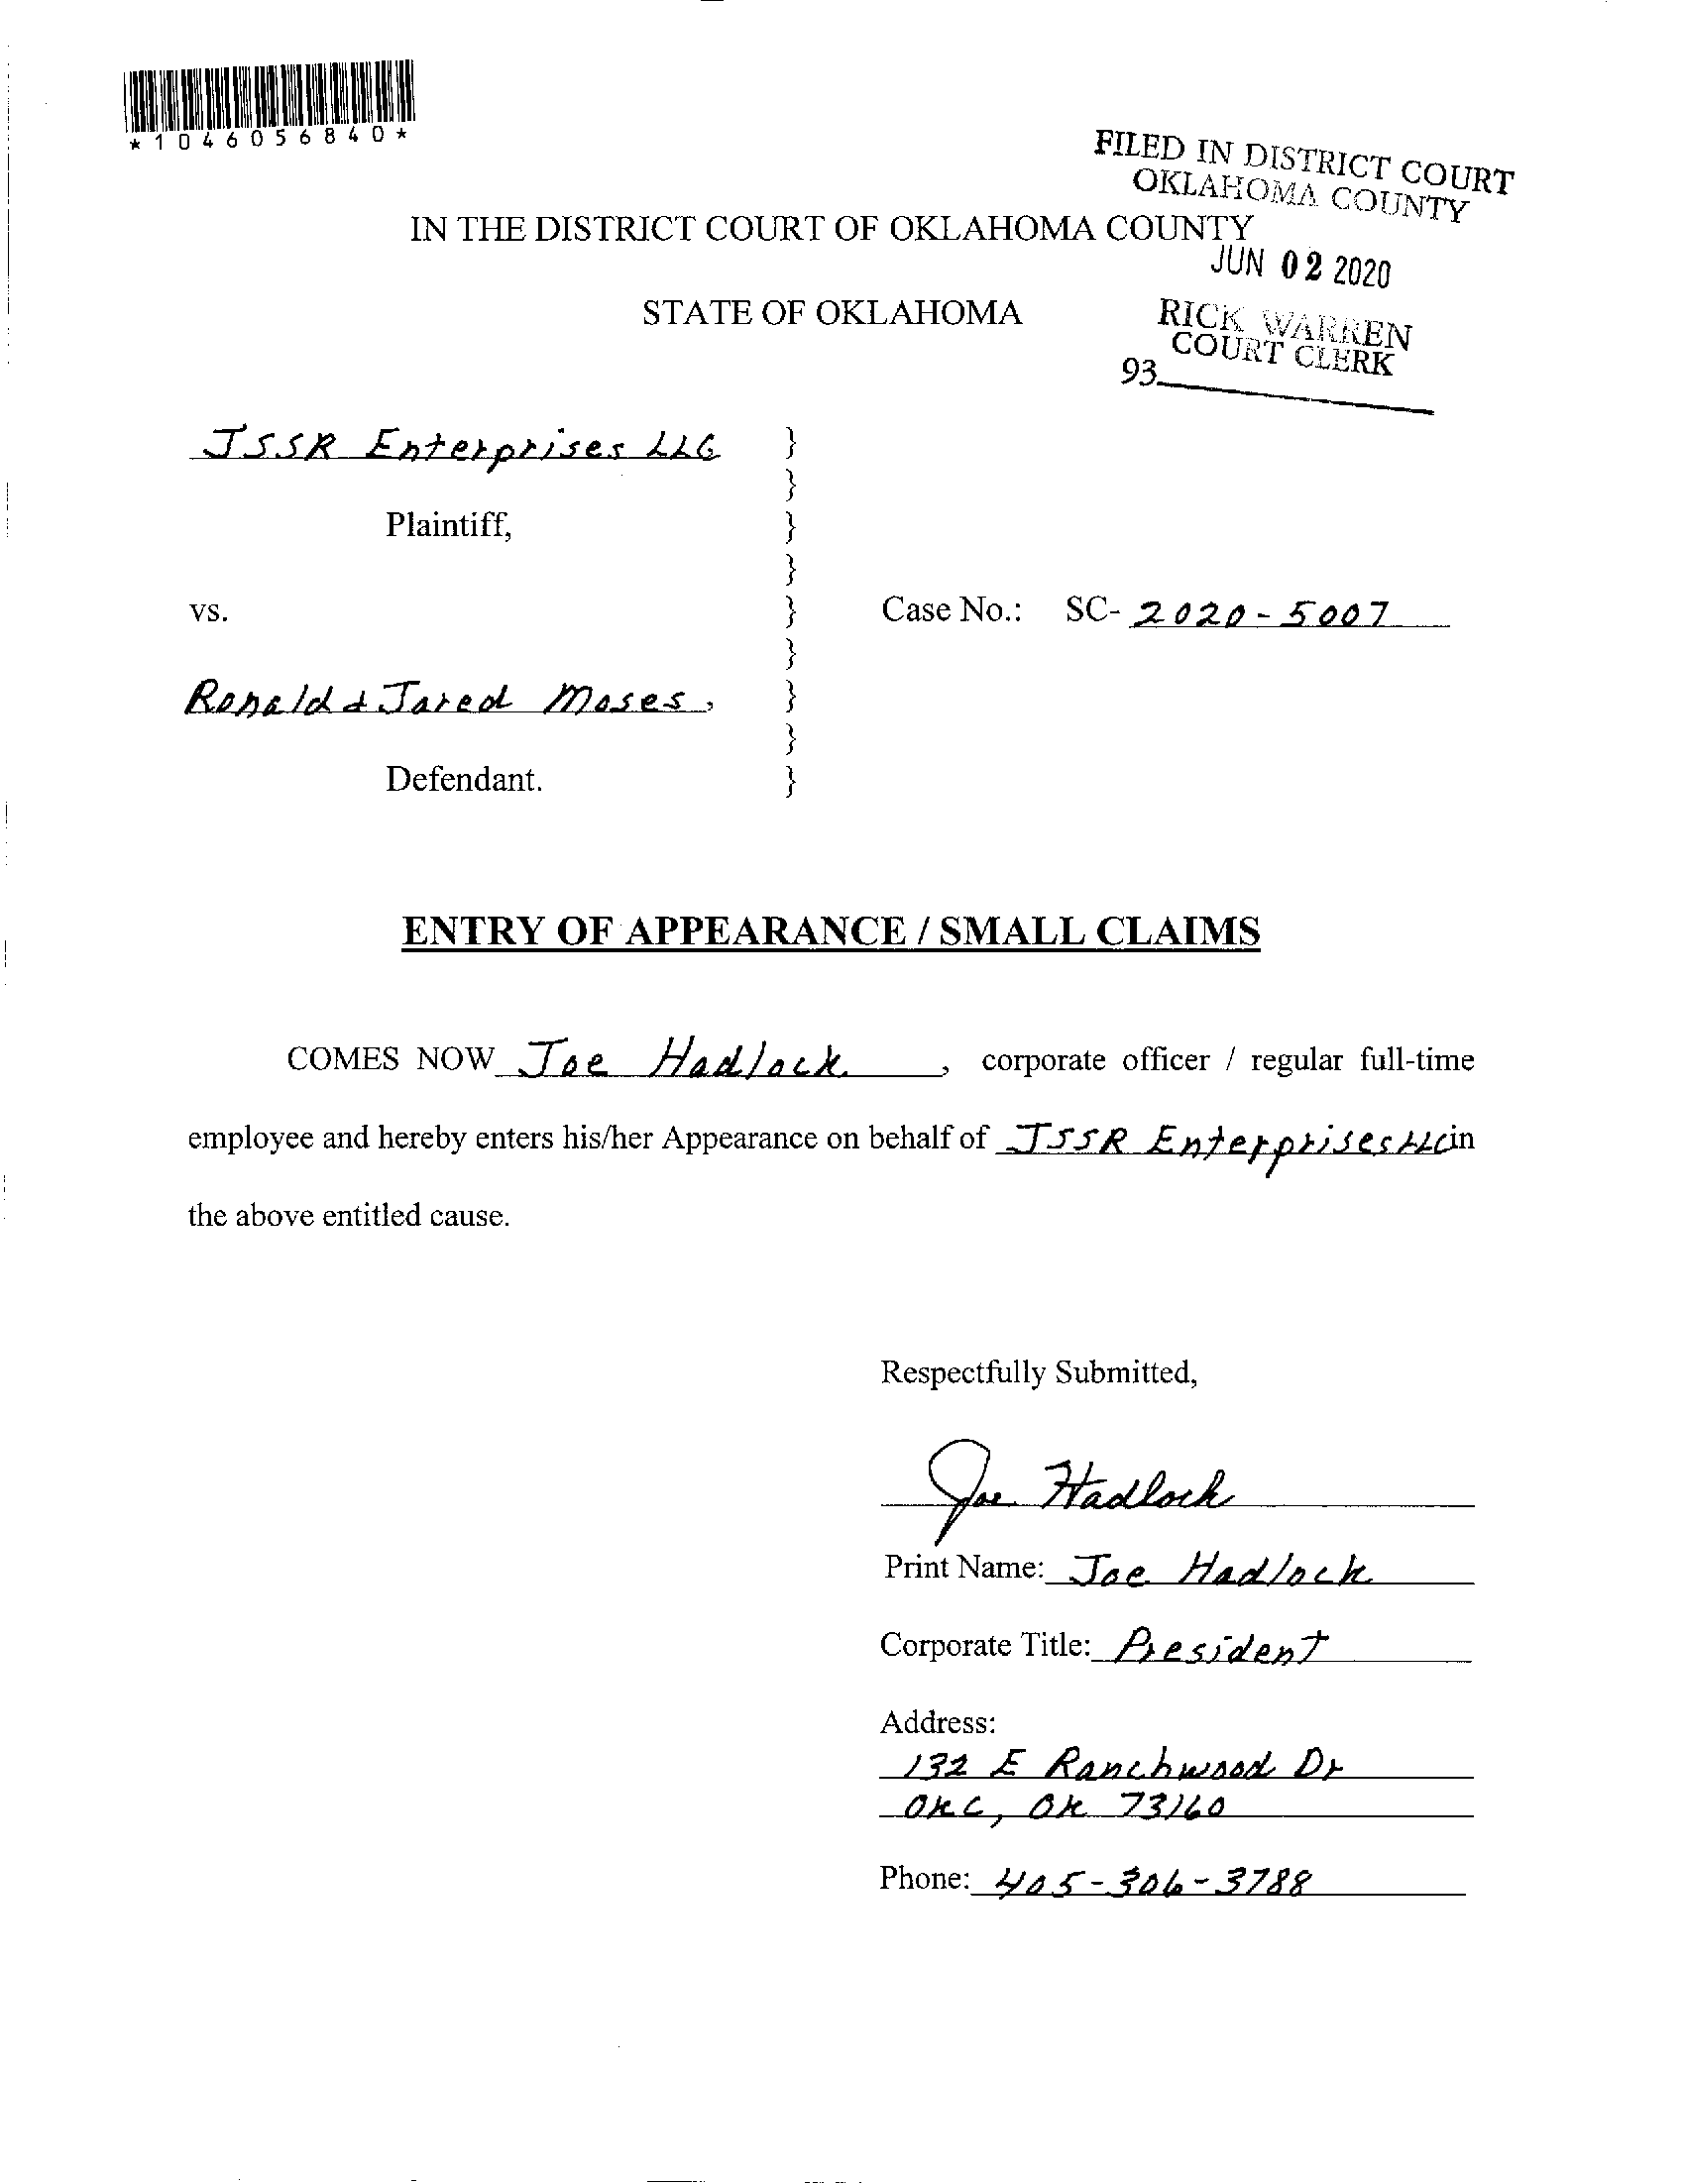 *1046056840*
FILED IN DISTRICT COURT
OKLAHOMA COUNTY
IN THE DISTRICT COURT OF OKLAHOMA COUNTY
JUN 02 2020
STATE OF OKLAHOMA
RICK WARREN
COURT CLERK
93
JSSR Enterprises LLC }
}
Plaintiff, }
}
vs. } Case No.: SC- 2020-5007
}
Ronald & Jared Moses, }
}
Defendant. }
ENTRY OF APPEARANCE / SMALL CLAIMS
COMES NOW Joe Hadlock, corporate officer / regular full-time
employee and hereby enters his/her Appearance on behalf of JSSR Enterprises LLC in
the above entitled cause.
Respectfully Submitted,
Joe Hadlock
Print Name: Joe Hadlock
Corporate Title: President
Address:
132 E Ranchwood Dr
OKC, OK 73160
Phone: 405-306-3788